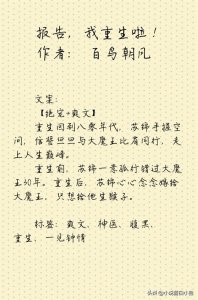 报告，我重生啦！
作者：百鸟朝凡
文案：
【绝宠+爽文】
重生回到八零年代，苏锦手握空
间，信誓旦旦与大魔王比肩同行，走
上人生巅峰。
重生前，苏锦一意孤行错过大魔
王30年。重生后，苏锦心心念念嫁给
大魔王，只想给他生猴子。
标签：爽文、神医、腹黑、
重生、一见钟情